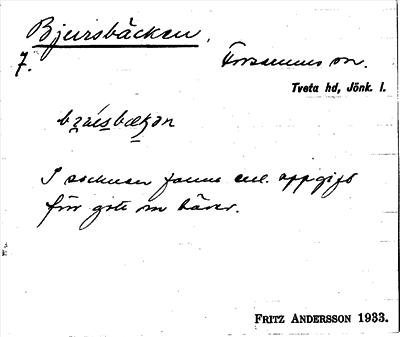 Bjursbäcken.
7. Forserums sn.
Tveta hd, Jönk. l.
I socknen fanns enl. uppgift
för
FRITZ ANDERSSON 1933.